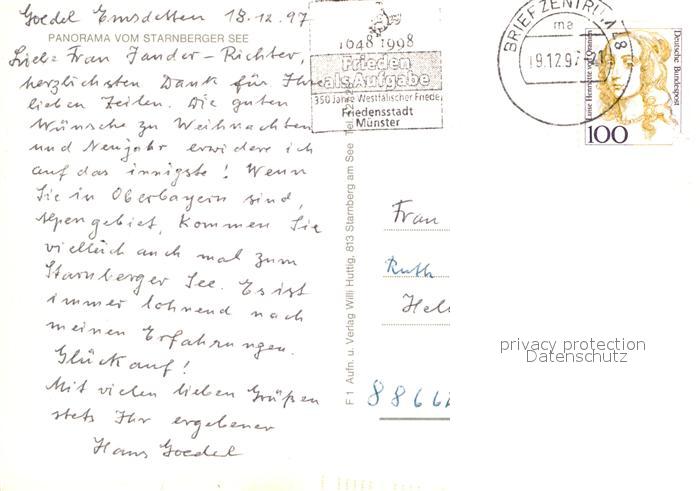 Goedel Emsdetten 18.12.97
PANORAMA VOM STARNBERGER SEE
Liebe Frau Zander-Richter,
herzlichsten Dank für Ihre
lieben Zeilen. Die guten
Wünsche zu Weihnachten
und Neujahr erwidere ich
auf das innigste! Wenn
Sie in Oberbayern sind,
Alpengebiet, kommen Sie
vielleich auch mal zum
Starnberger See. Es ist
immer lohnend nach
meinen Erfahrungen.
Glückauf!
Mit vielen lieben Grüßen
stets Ihr ergebener
Hans Goedel
1648 1998
Frieden
als Aufgabe
350 Jahre Westfälischer Friede
Friedensstadt
Münster
BRIEFZENTRUM 48
ma
19.12.97
Deutsche Bundespost
Luise Henriette von Oranien
100
F 1 Aufn. u. Verlag Willi Huttig, 813 Starnberg am See Tel.
Frau
Ruth
Hel
8866
privacy protection
Datenschutz